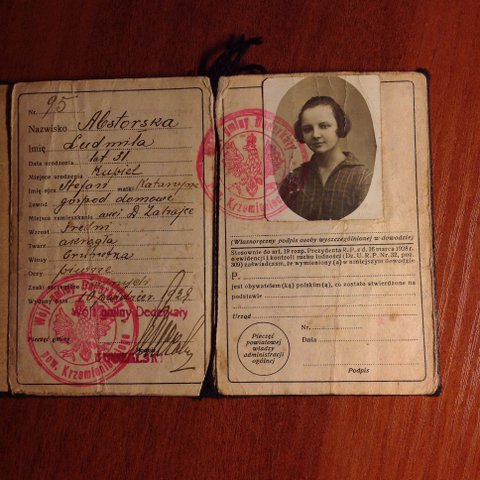 Nr. 95
Nazwisko Abstorska
Imię Ludmiła
Data urodzenia lat 31
Miejsce urodzenia
Imię ojca Stefan matki Katarzyna
Zawód gospod domowe
Miejsce zamieszkania
Wzrost średni
Twarz okrągła
Włosy
Oczy
Znaki szczególne
Wydany dnia 1929
Wójt gminy Dederkały
Pieczęć gminy
KOWALSKI
pow. Krzemieniec
(Własnoręczny podpis osoby wyszczególnionej w dowodzie)
Stosownie do art. 19 rozp. Prezydenta R.P. z d. 16 marca 1928 r.
o ewidencji i kontroli ruchu ludności (Dz. U. R. P. Nr. 32, poz.
309) zaświadczam, że wymieniony (a) w niniejszym dowodzie
P.
jest obywatelem(ką) polskim(ą), co zostało stwierdzone na
podstawie
Urząd
Nr.
Data
Pieczęć
powiatowej
władzy
administracji
ogólnej
Podpis